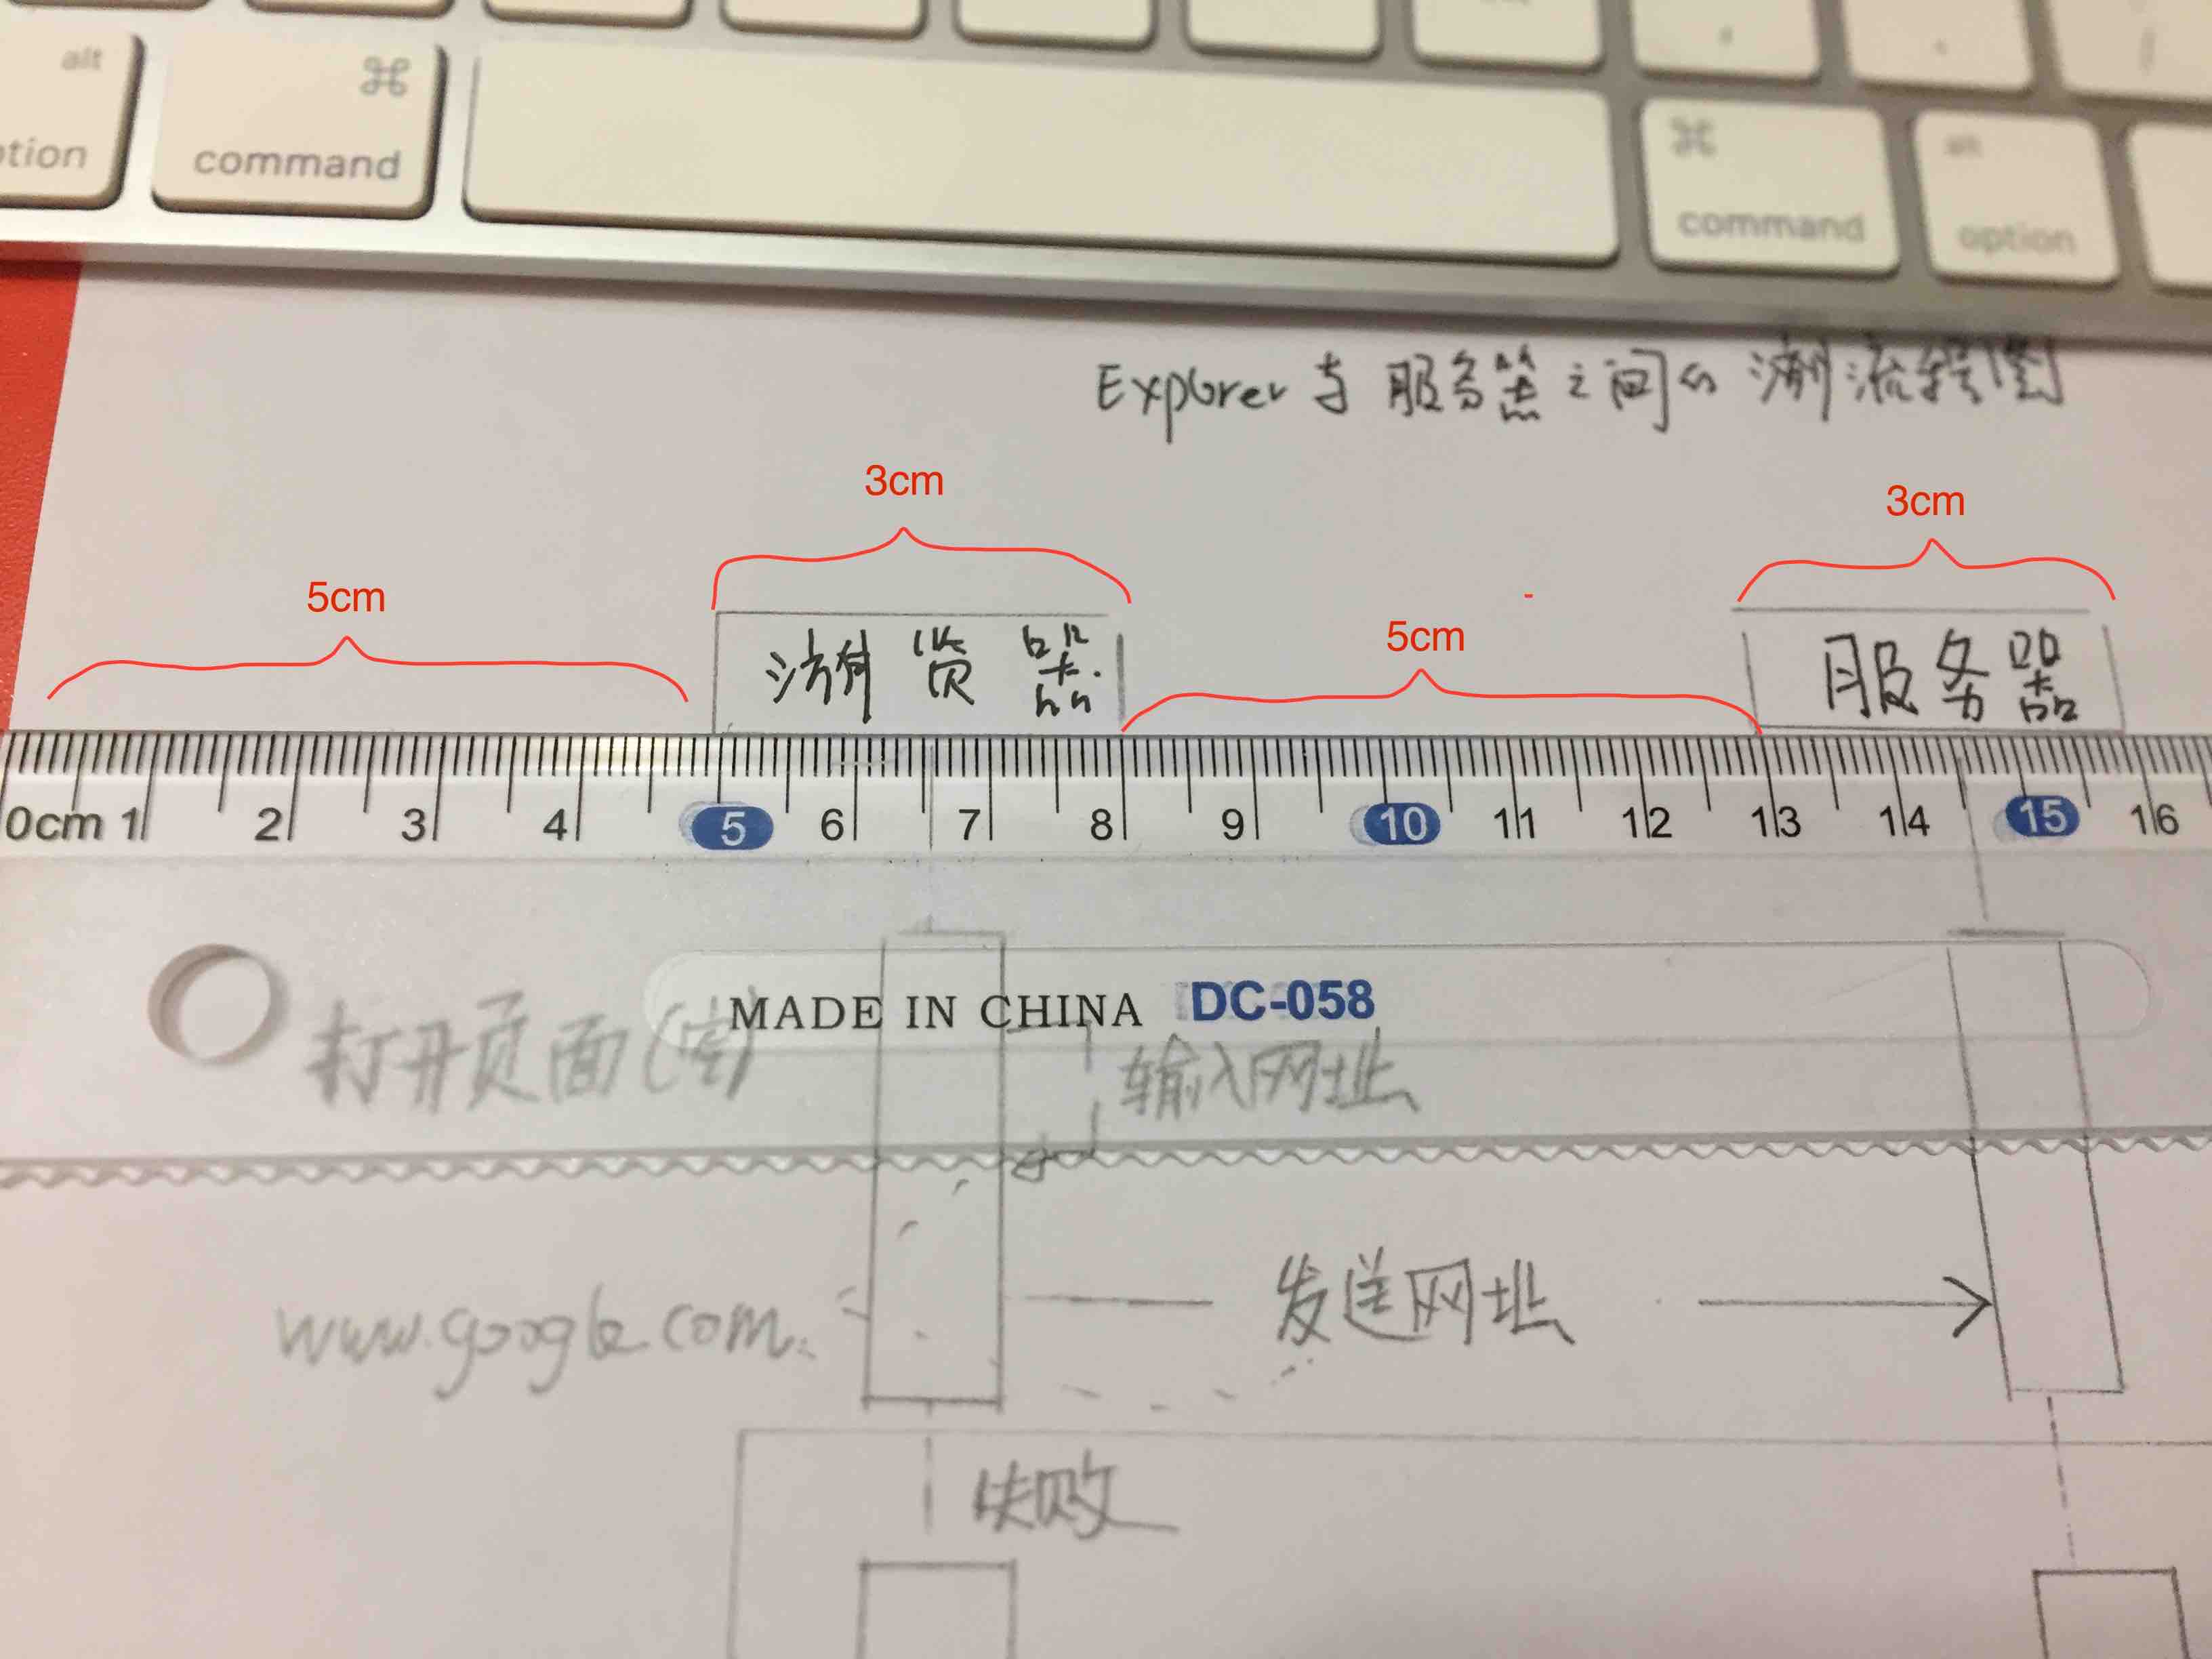 alt
⌘
⌘
alt
command
command
option
Explorer 与服务器之间的 流程图
3cm
3cm
5cm
5cm
服务器
0cm 1 2 3 4 5 6 7 8 9 10 11 12 13 14 15 16
MADE IN CHINA DC-058
打开页面(空)
输入网址
www.google.com
发送网址
失败